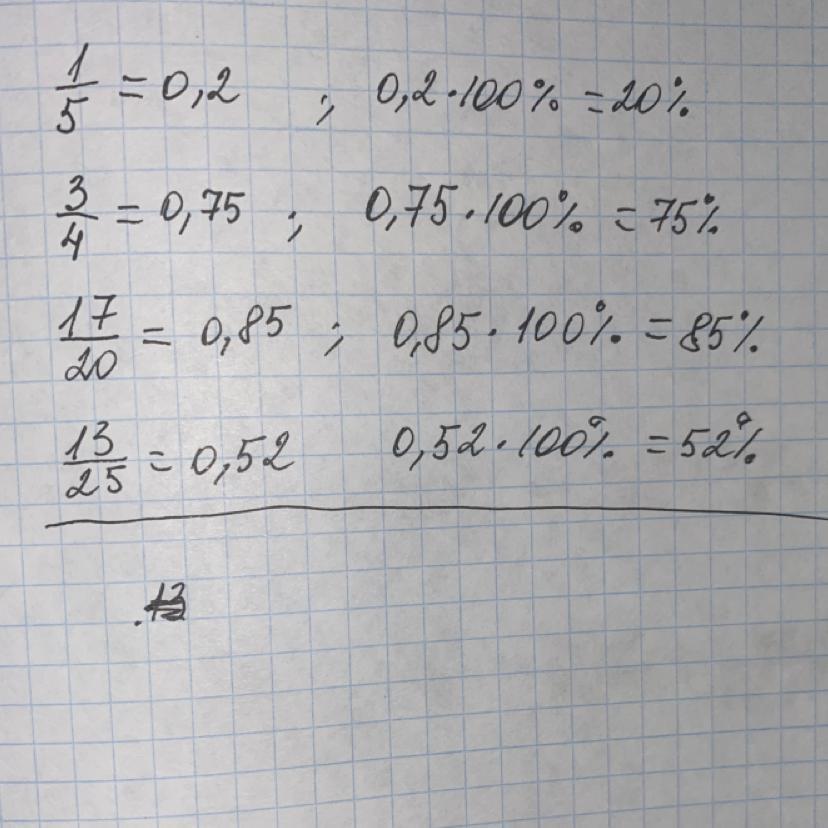 1/5 = 0,2 ; 0,2·100% = 20%
3/4 = 0,75 ; 0,75·100% = 75%
17/20 = 0,85 ; 0,85·100% = 85%
13/25 = 0,52 0,52·100% = 52%